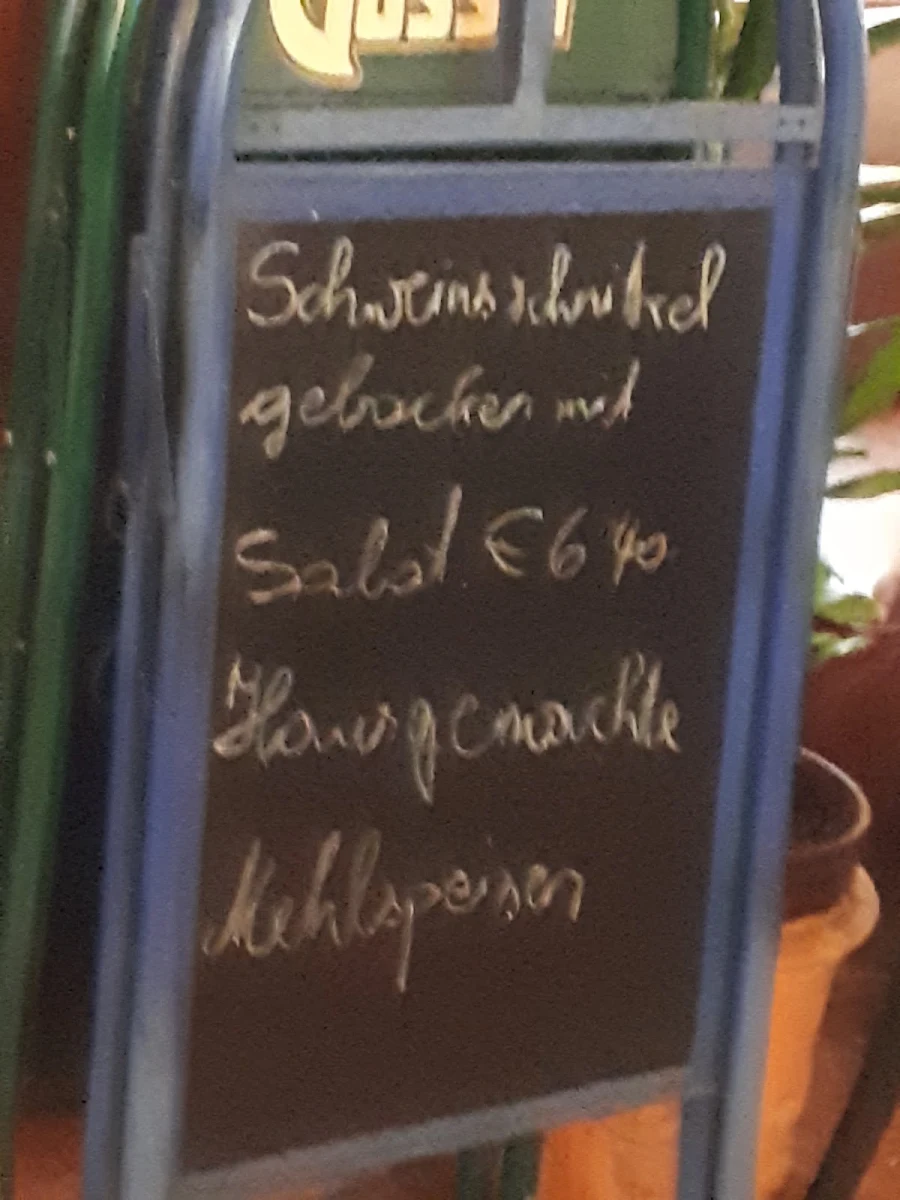 Schweinsschnitzel
gebacken mit
Salat € 6 40
Hausgemachte
Mehlspeisen